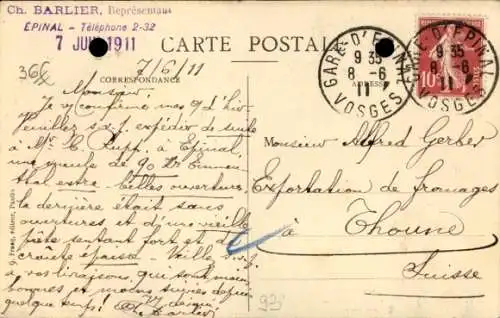 Ch. BARLIER, Représentant
ÉPINAL - Téléphone 2-32
7 JUIN 1911
CARTE POSTALE
CORRESPONDANCE
ADRESSE
GARE D'EPINAL
9 35
8 -6
11
VOSGES
GARE D'EPINAL
9 35
-6
11
VOSGES
10
365
7/6/11
Monsieur,
Je vous confirme mes d'hier
Veuillez s.v.p. expédier de suite
à Mr. à Epinal
une meule de 90 Emmen
thal extra belles ouvertures
la dernière était sans
ouvertures et d'une vieille
pâte sentant fort et de
croute épaisse - Veillez s.v.p
à vos livraisons que soient
bonnes et moins
quelque temps!
Ch. Barlier
Monsieur Alfred Gerber
Exportation de fromages
à Thoune
Suisse